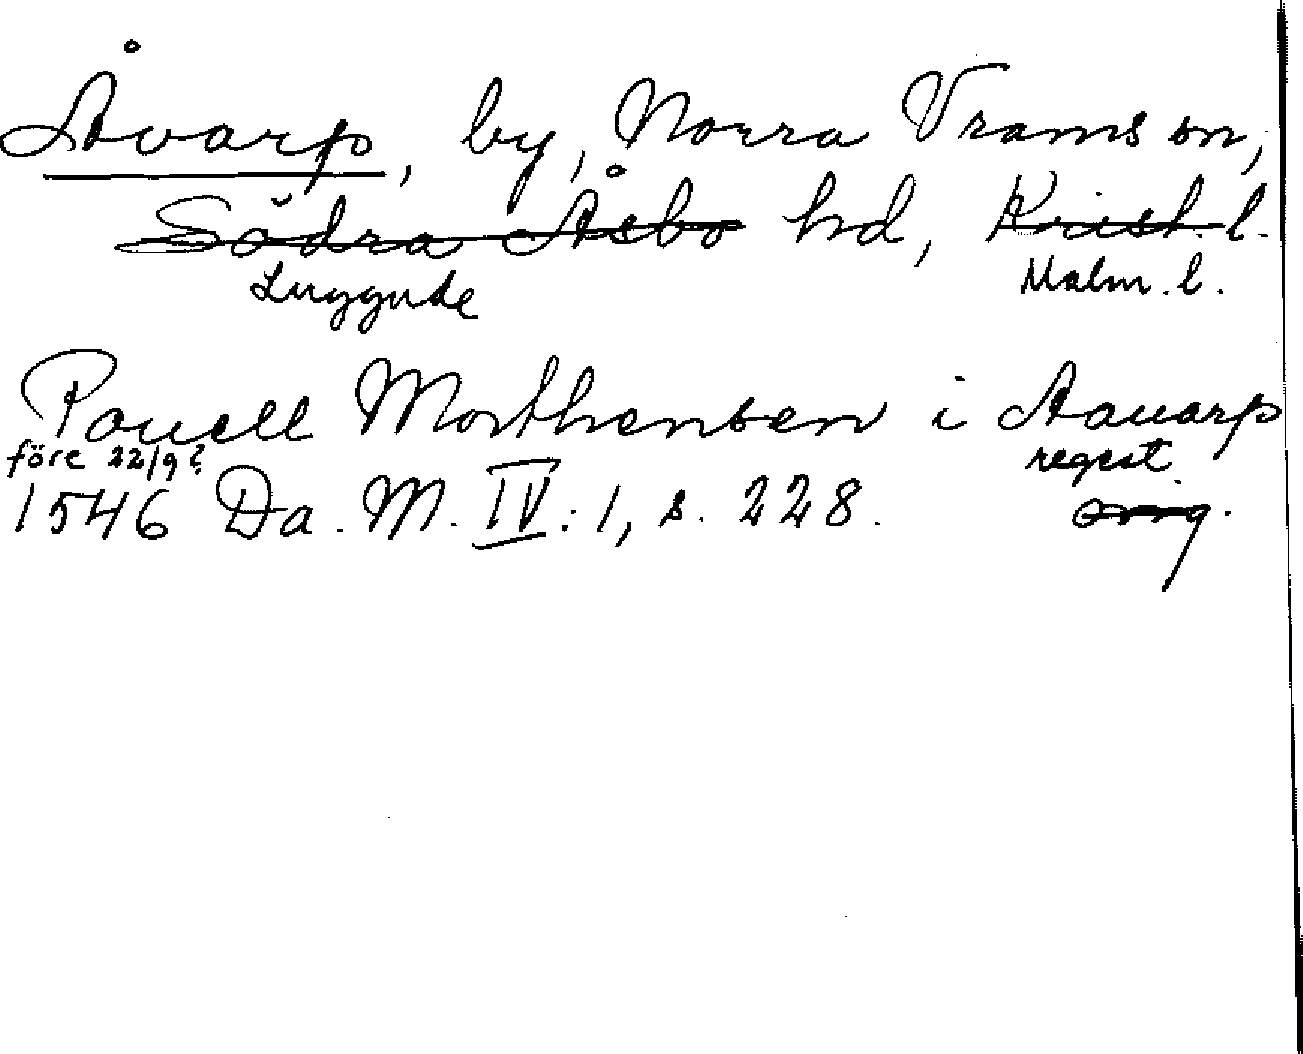 Åvarp, by, Norra Vrams sn,
Södra Åsbo hd, Krist. l.
Luggude Malm. l.
Pouell Morthensen i Aauarp
före 22/9? regest.
1546 Da. M. IV: 1, s. 228. orig.